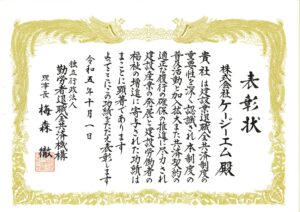 表彰状
株式会社ケーシーエム殿
貴社は建設業退職金共済制度の
重要性を深く認識され本制度の
普及活動と加入拡大また共済契約の
適正な履行の確保の推進に尽力され
建設産業の発展と建設労働者の
福祉の増進に寄与された功績は
まことに顕著であります
よってここにその功績をたたえ表彰します
令和五年十月一日
独立行政法人
勤労者退職金共済機構
理事長 梅森徹